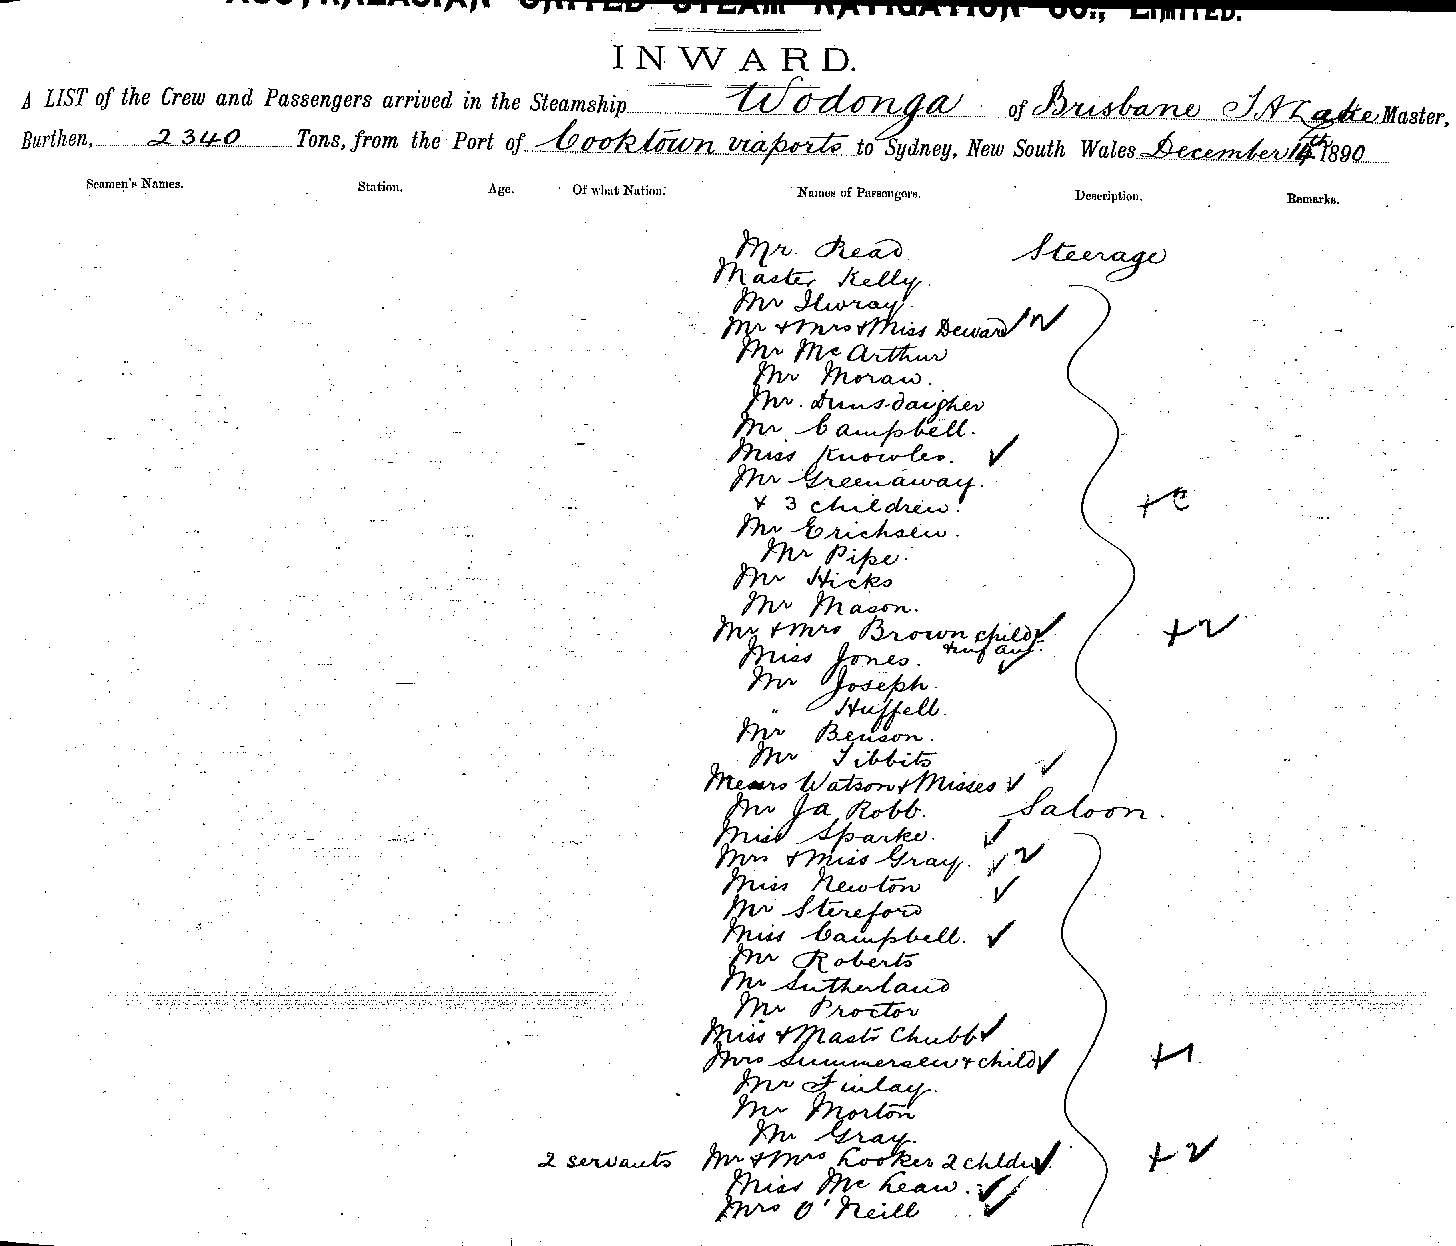 AUSTRALASIAN UNITED STEAM NAVIGATION CO., LIMITED.
INWARD.
A LIST of the Crew and Passengers arrived in the Steamship Wodonga of Brisbane J A Lake Master,
Burthen, 2340 Tons, from the Port of Cooktown via ports to Sydney, New South Wales December 1890
Seamen's Names. Station. Age. Of what Nation. Names of Passengers. Description. Remarks.
Mr. Read Steerage
Master Kelly
Mr
Mr & Mrs & Miss Deward
Mr McArthur
Mr Moran.
Mr.
Mr Campbell.
Miss Knowles.
Mr Greenaway.
& 3 children. +c
Mr Erichsen.
Mr Pipe.
Mr Hicks
Mr Mason.
Mr & Mrs Brown child +2
& infant.
Miss Jones.
Mr Joseph.
" Huffell.
Mr Benson.
Mr Tibbits
Watson & Misses
Mr Ja Robb. Saloon.
Miss Sparke.
Mrs & Miss Gray. 2
Miss Newton
Mr Stereford
Miss Campbell.
Mr Roberts
Mr Sutherland
Mr Proctor
Miss & Mastr Chubb
Mrs Summersen & child +1
Mr Finlay.
Mr Morton
Mr Gray.
2 servants Mr & Mrs Looker 2 childn +2
Miss McLean.
Mrs O'Neill